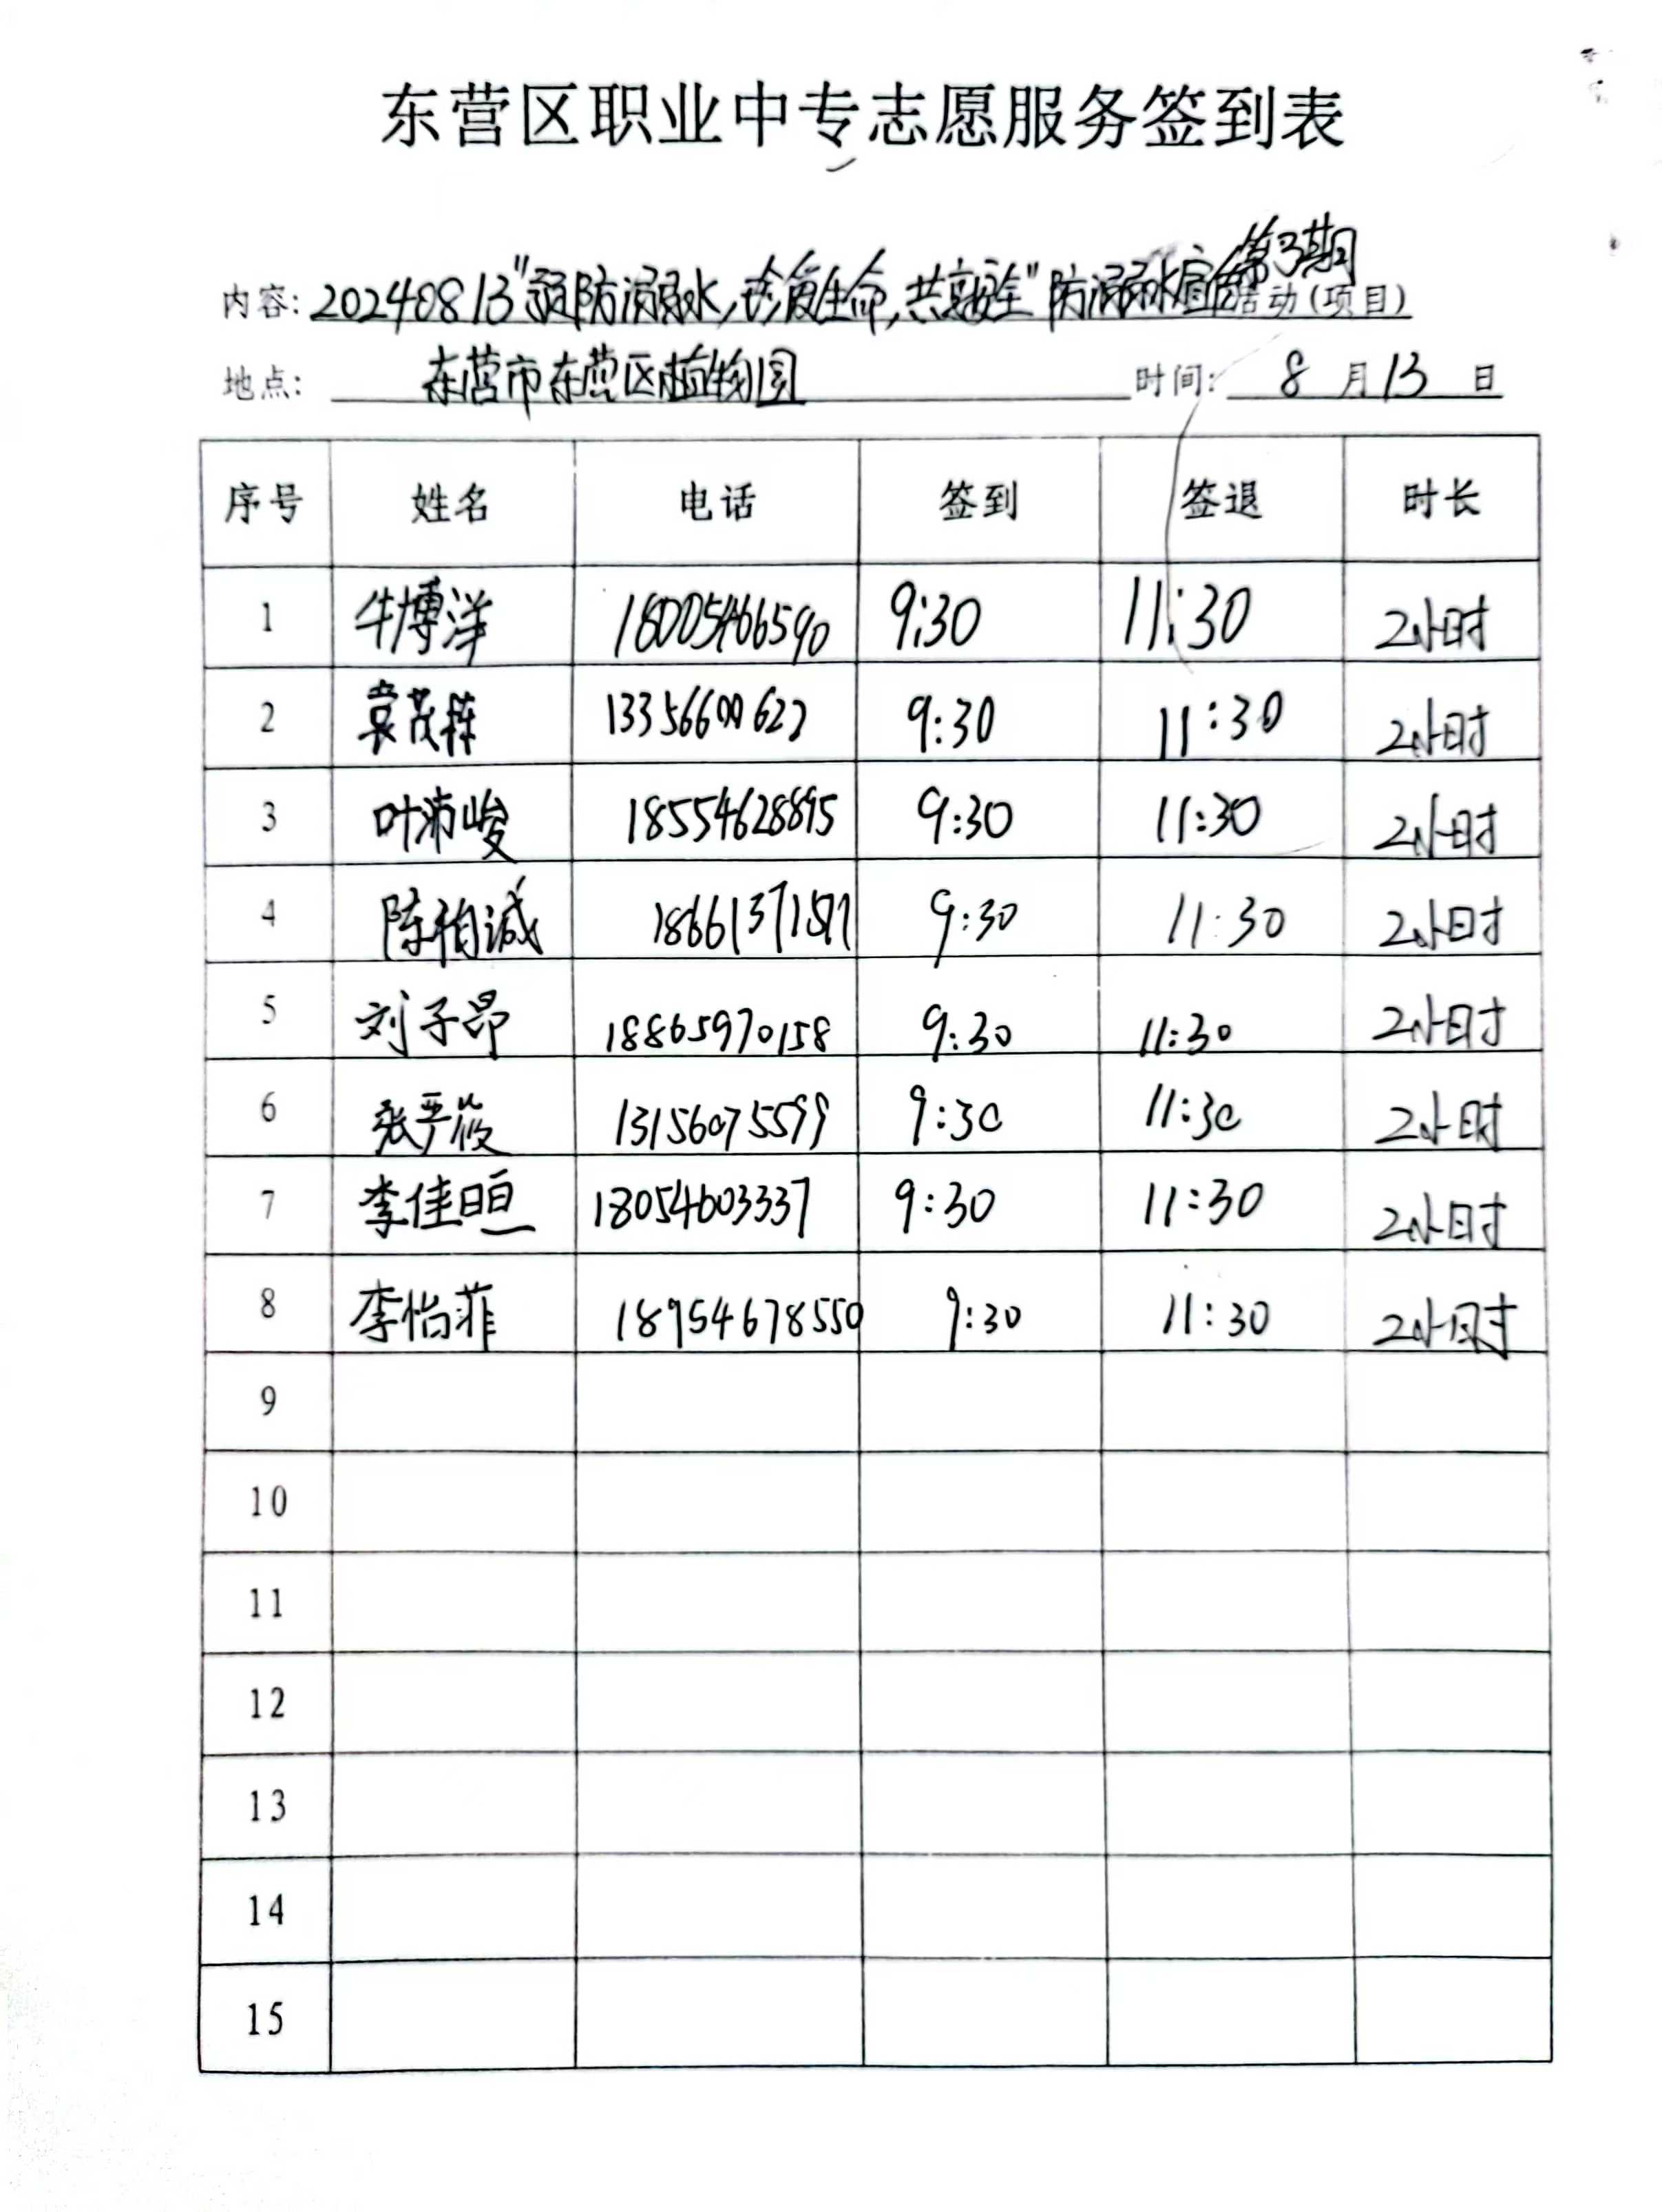 东营区职业中专志愿服务签到表
第3期
内容: 20240813"预防溺水,珍爱生命,共享安全"防溺水宣传活动(项目)
地点: 东营市东营区植物园 时间: 8 月 13 日
序号 姓名 电话 签到 签退 时长
1 牛博洋 18005466590 9:30 11:30 2小时
2 袁茂栋 9:30 11:30 2小时
3 叶沛峻 18554628895 9:30 11:30 2小时
4 陈柏诚 9:30 11:30 2小时
5 刘子昂 18865970158 9:30 11:30 2小时
6 张严筱 13156075599 9:30 11:30 2小时
7 李佳晅 18054603337 9:30 11:30 2小时
8 李怡菲 18954678550 9:30 11:30 2小时
9
10
11
12
13
14
15